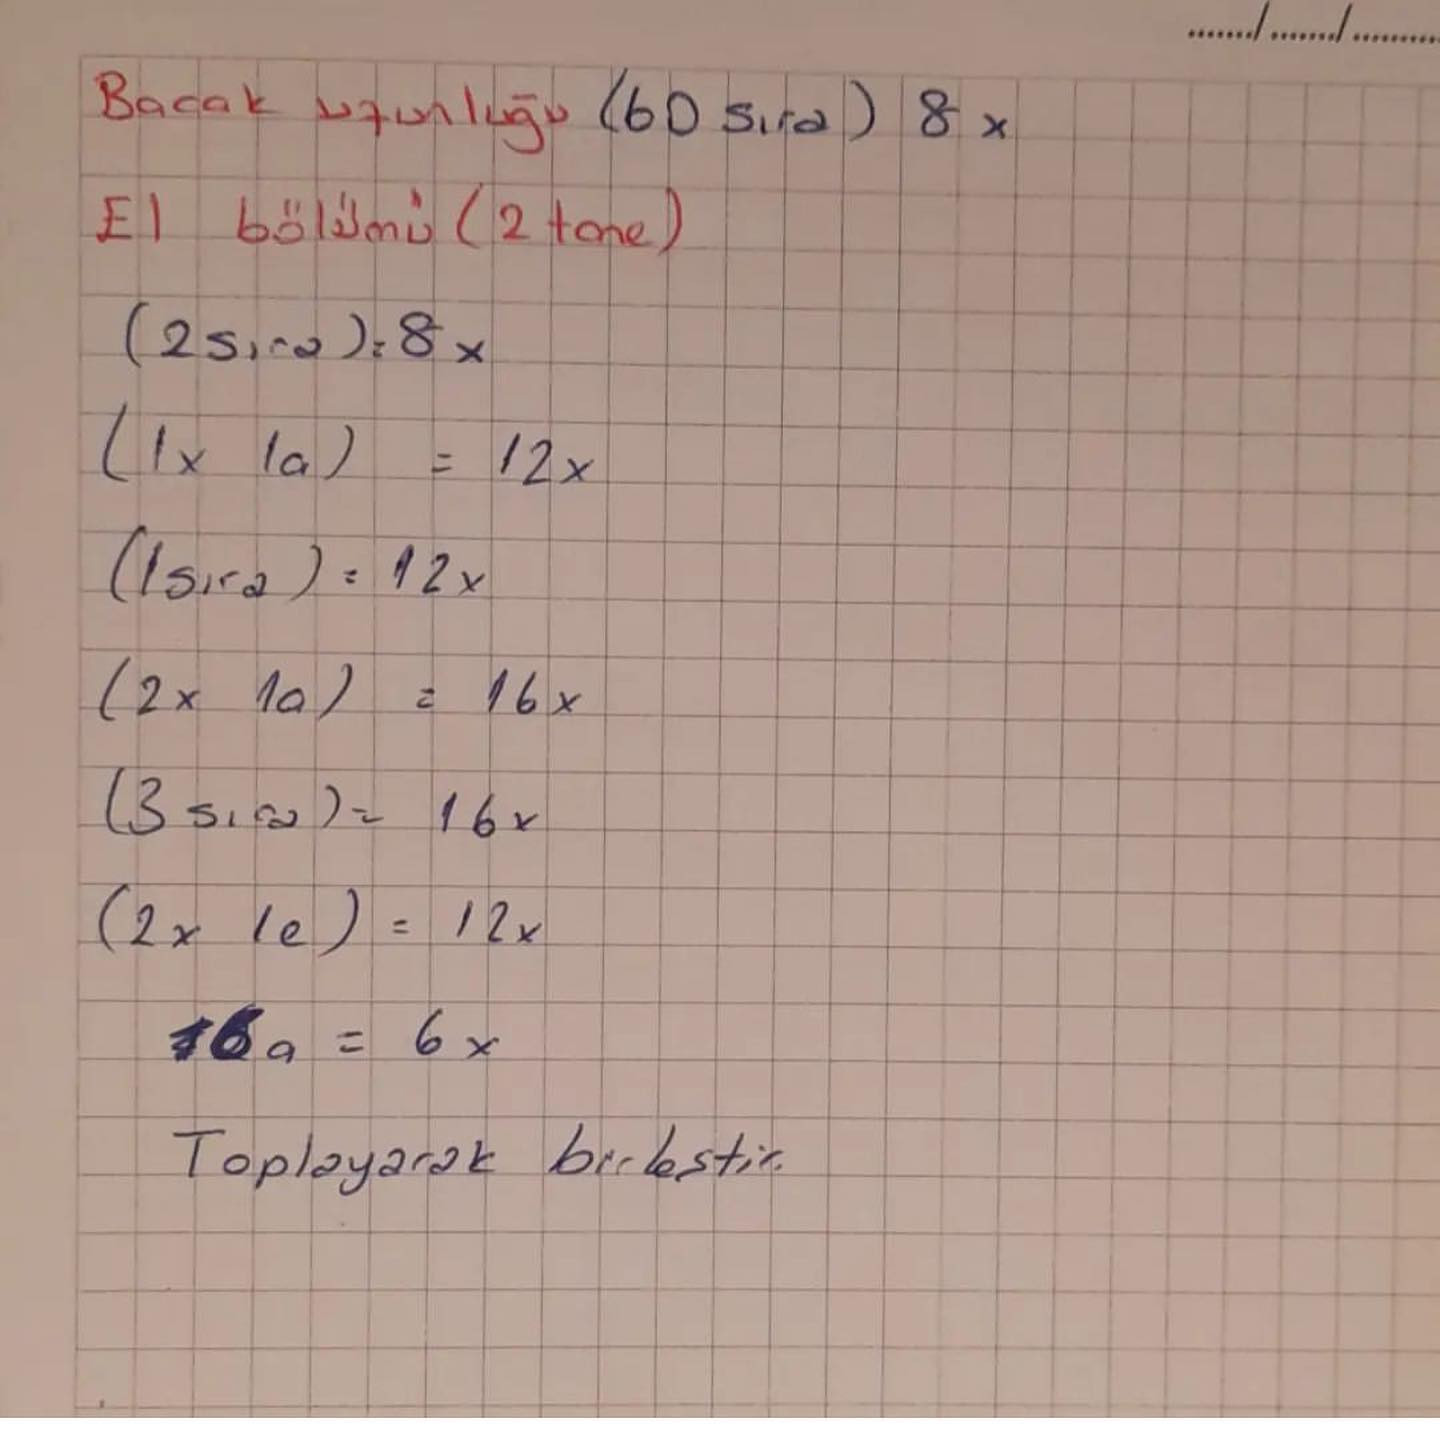 Bacak uzunluğu (60 sıra) 8 x
El bölümü (2 tane)
(2 sıra) = 8 x
(1x 1a) = 12x
(1 sıra) = 12x
(2x 1a) = 16x
(3 sıra) = 16x
(2x 1e) = 12x
6a = 6x
Toplayarak birleştir.